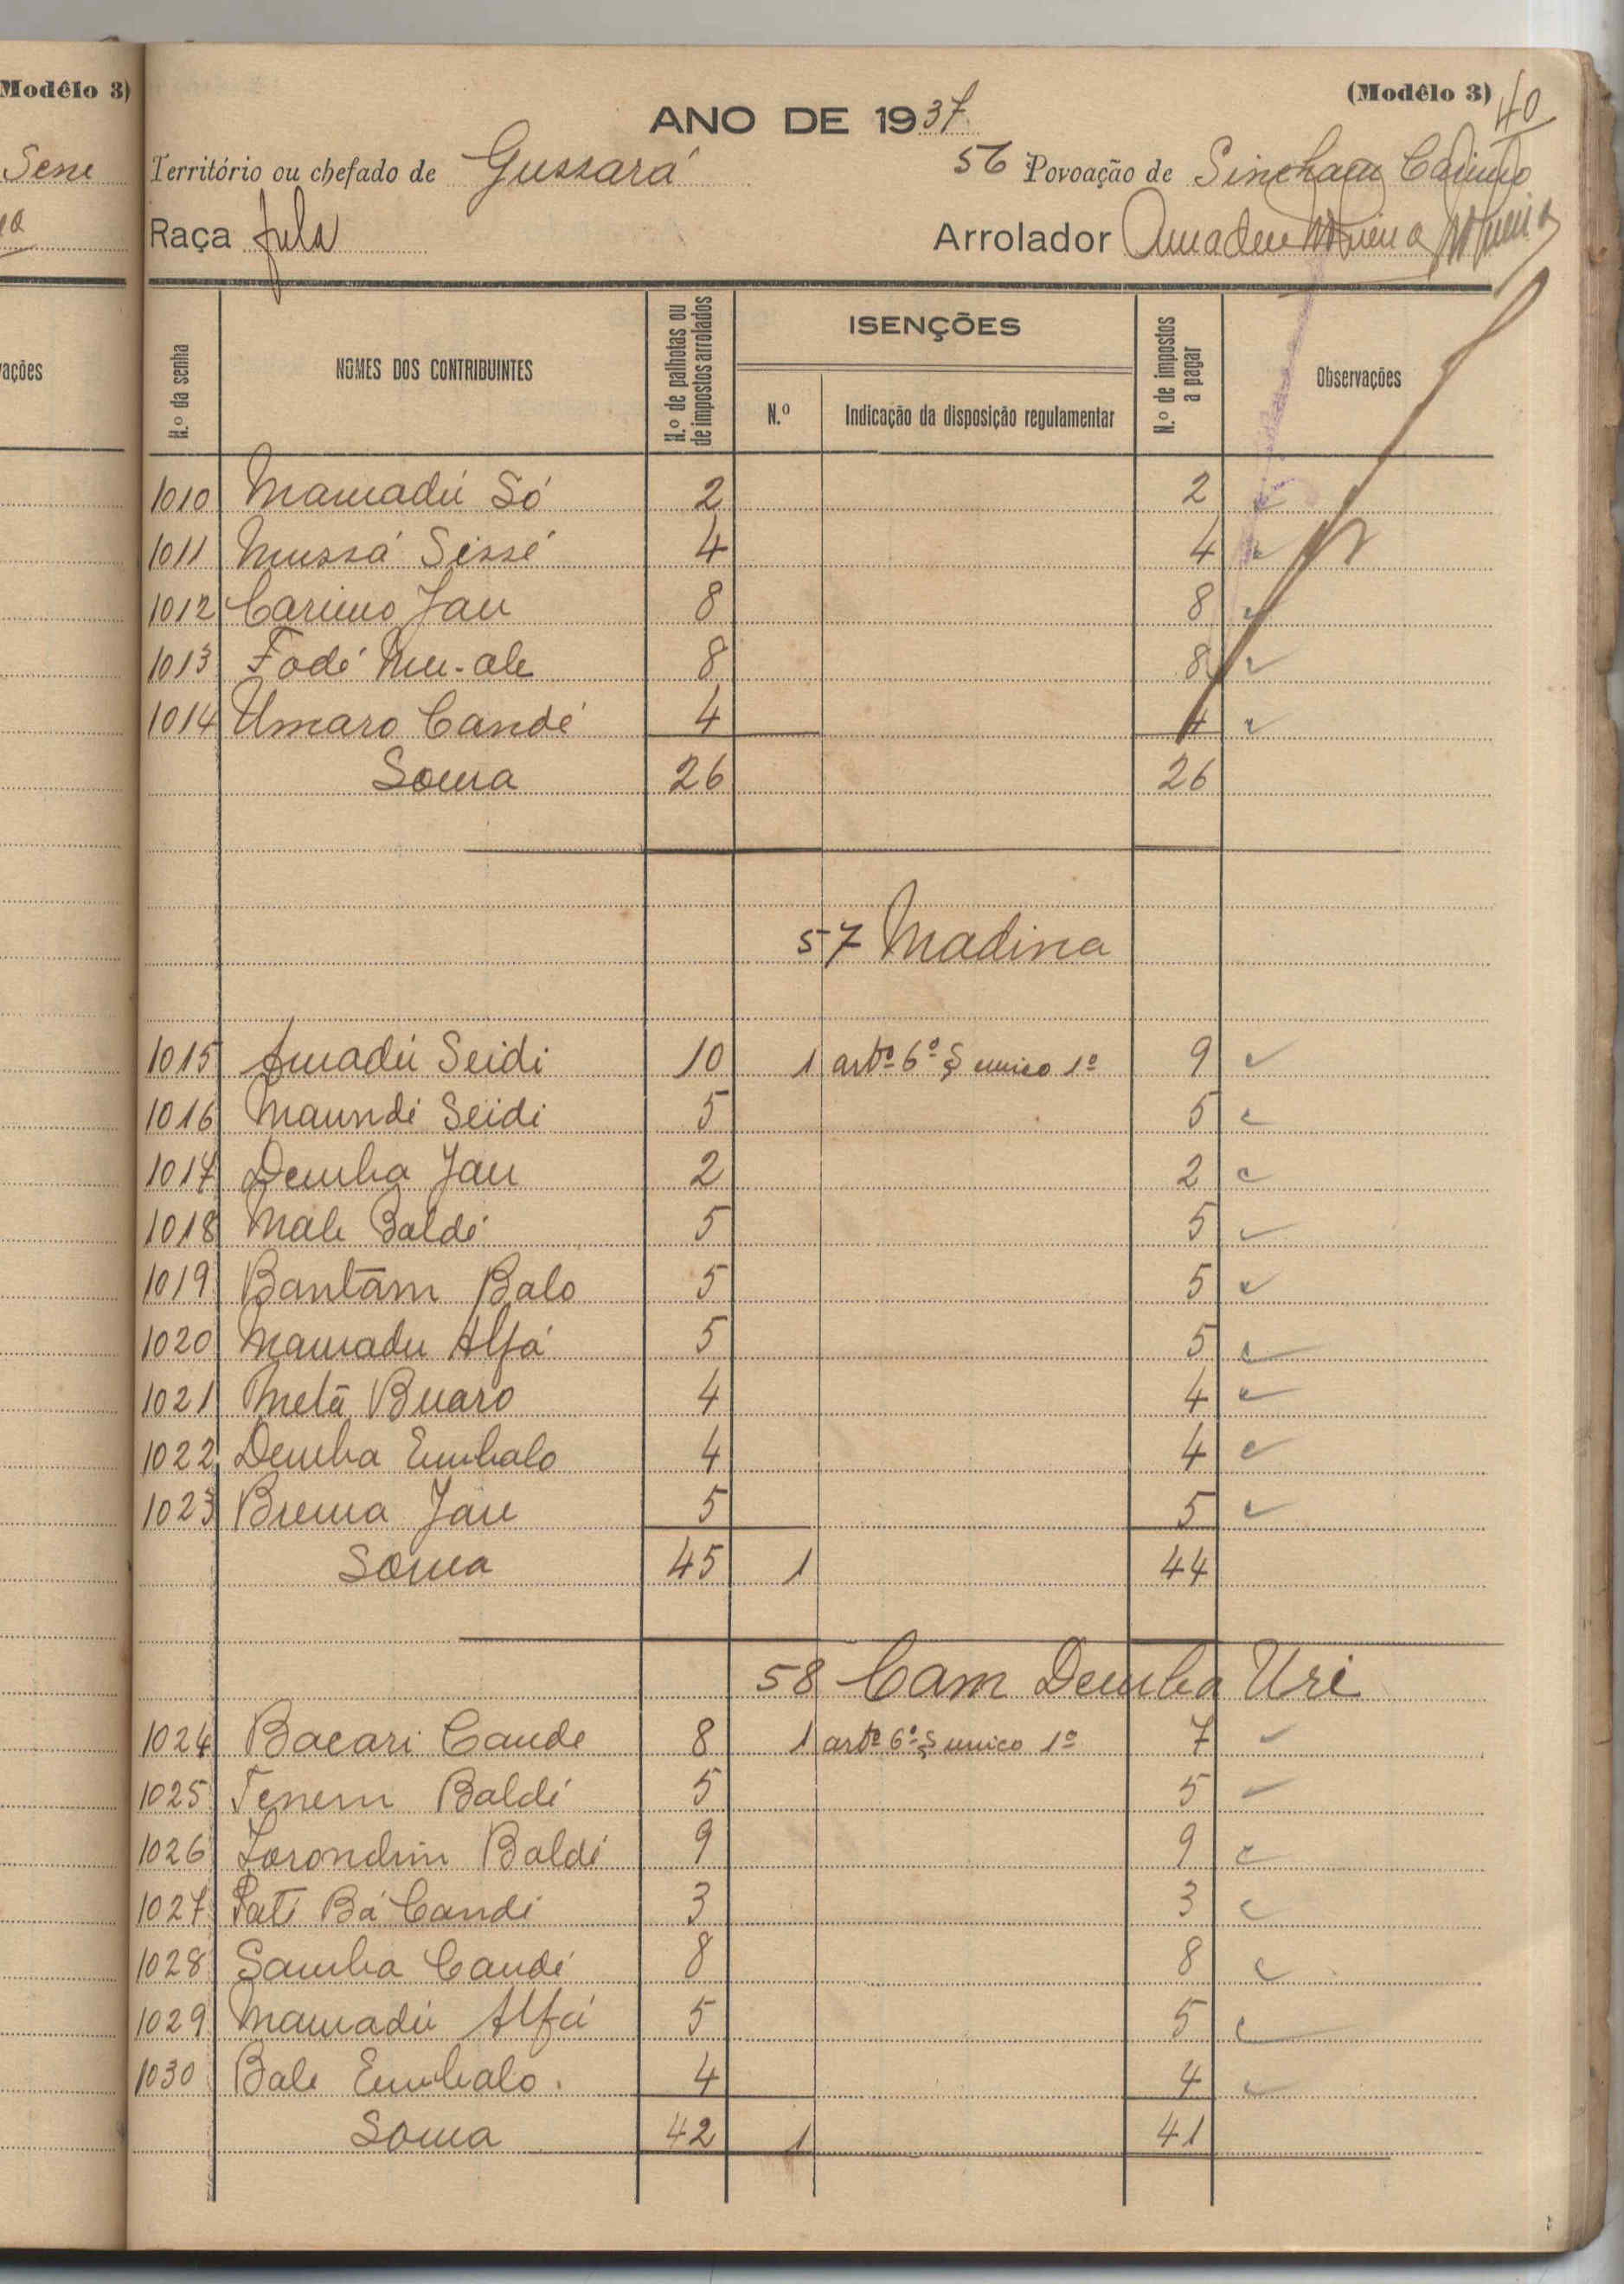 Modêlo 3)
Sene
vações
(Modêlo 3) 40
ANO DE 1937
Território ou chefado de Gussará 56 Povoação de Sincham Carimo
Raça fula Arrolador Amadeu Nogueira
N.º da senha NOMES DOS CONTRIBUINTES N.º de palhotas ou de impostos arrolados ISENÇÕES N.º Indicação da disposição regulamentar N.º de impostos a pagar Observações
1010 Mamadú Só 2 2
1011 Mussá Sissé 4 4
1012 Carimo Jau 8 8
1013 Fodé Mu-ale 8 8
1014 Umaro Candé 4 4
Soma 26 26
57 Madina
1015 Amadú Seidi 10 1 artº 6º § unico 1º 9
1016 Maundé Seidi 5 5
1017 Demba Jau 2 2
1018 Male Baldé 5 5
1019 Bantãm Balo 5 5
1020 Mamadu Alfá 5 5
1021 Metã Buaro 4 4
1022 Demba Embalo 4 4
1023 Brema Jau 5 5
Soma 45 1 44
58 Cam Demba Uri
1024 Bacari Cande 8 1 artº 6º § unico 1º 7
1025 Tenem Baldé 5 5
1026 Lorondim Baldé 9 9
1027 Pati Bá Candé 3 3
1028 Samba Candé 8 8
1029 Mamadú Alfá 5 5
1030 Bale Embalo. 4 4
Soma 42 1 41